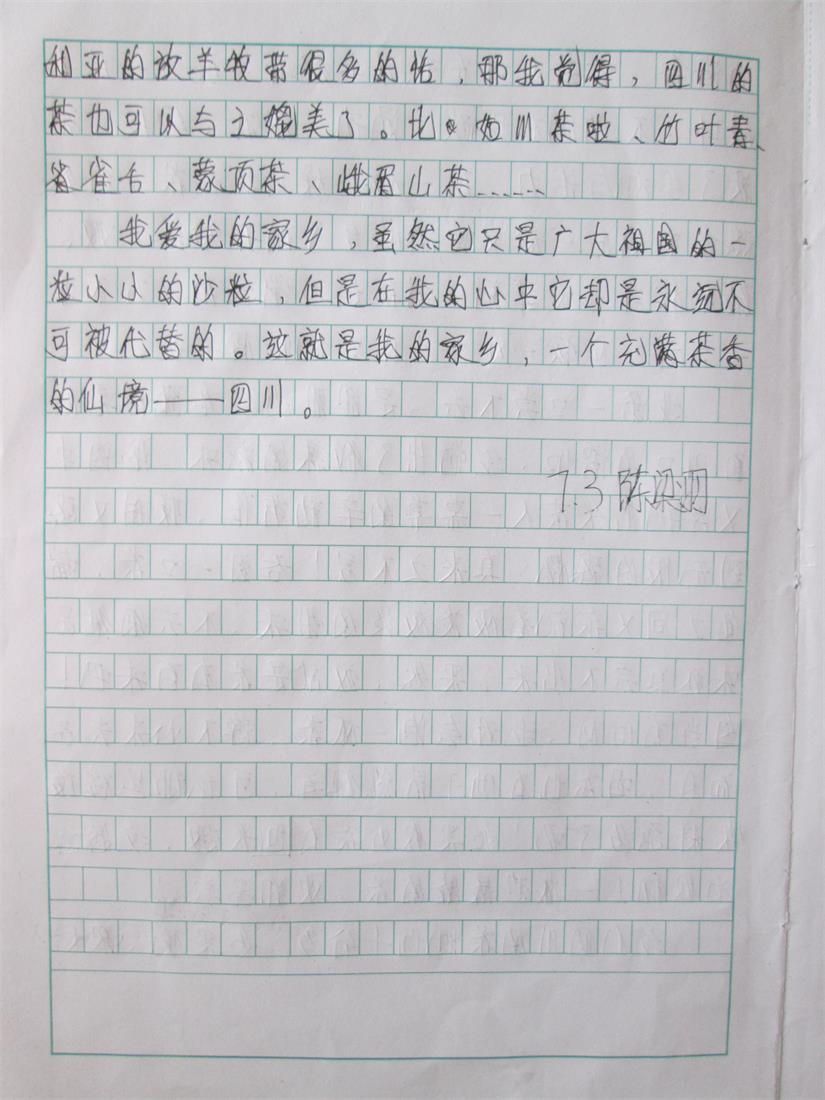 利亚的放羊牧带很多的话，那我觉得，四川的
茶也可以与之媲美了。比如川茶啦、竹叶青、
雀舌、蒙顶茶、峨眉山茶……
我爱我的家乡，虽然它只是广大祖国的一
粒小小的沙粒，但是在我的心中它却是永远不
可被代替的。这就是我的家乡，一个充满茶香
的仙境——四川。
7.3 陈梁羽